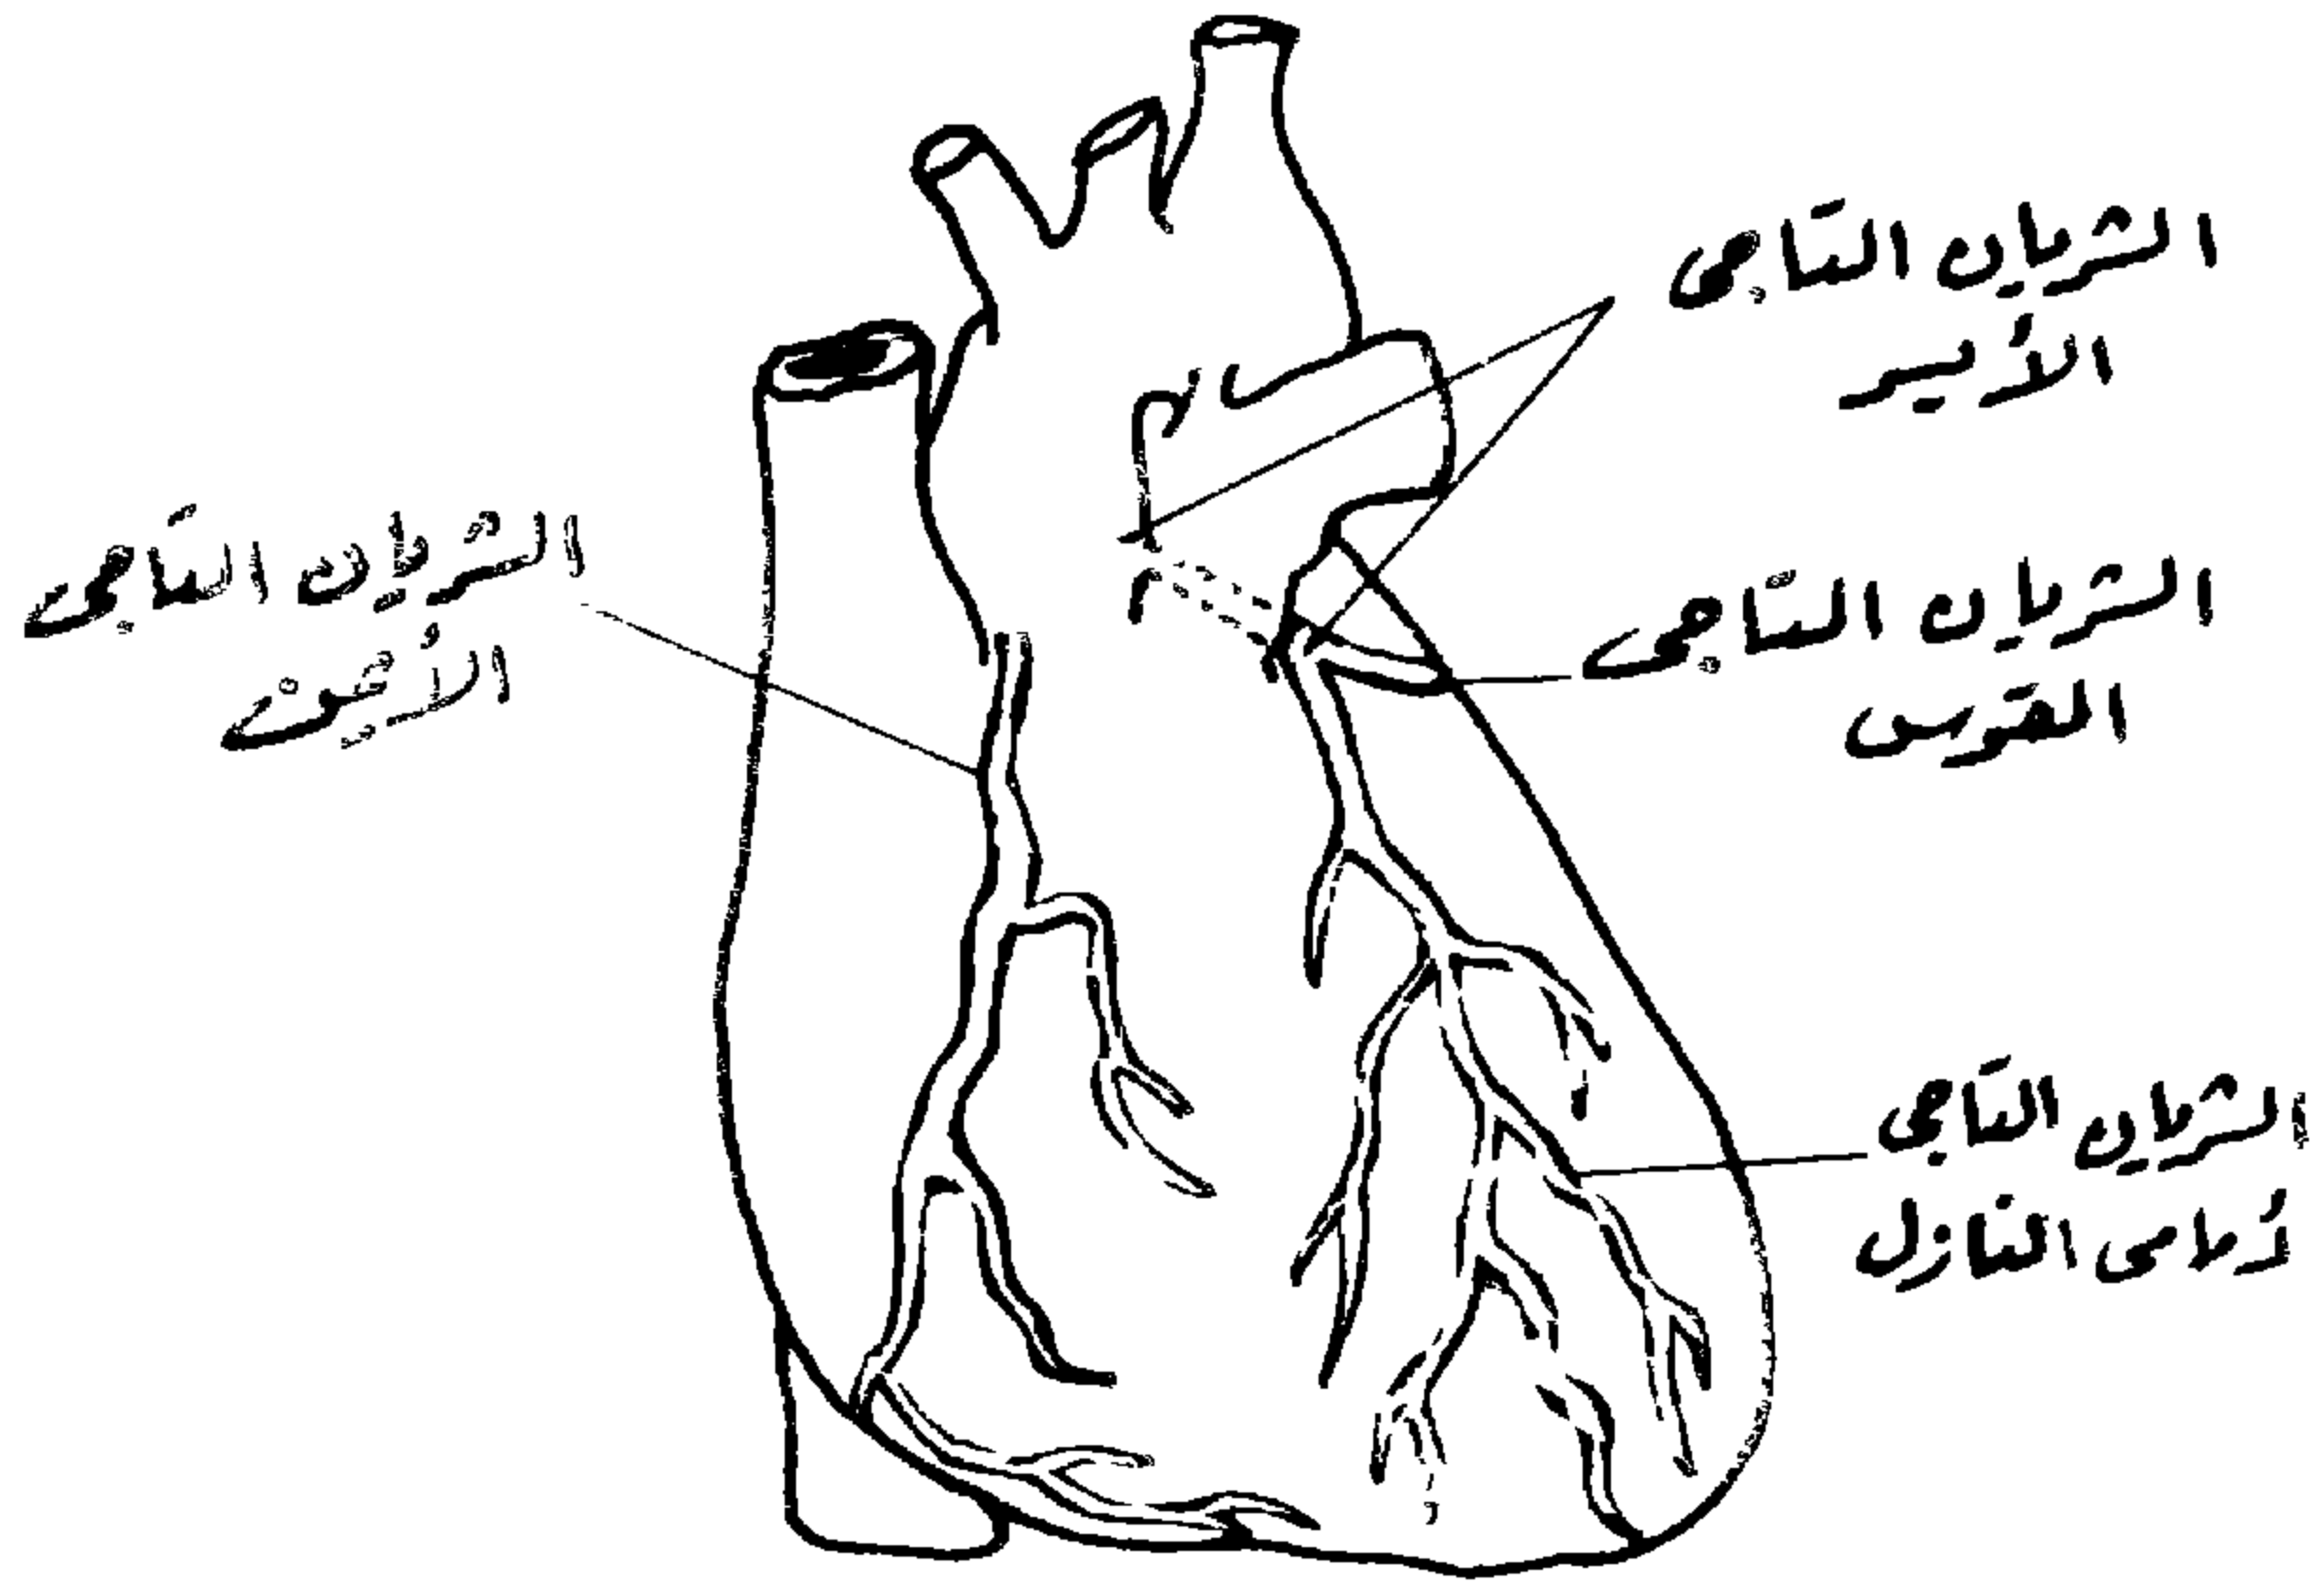 الشريان التاجى
الأيسر
الشريان التاجى
المقوس
الشريان التاجى
الأيمن
الشريان التاجى
النازل